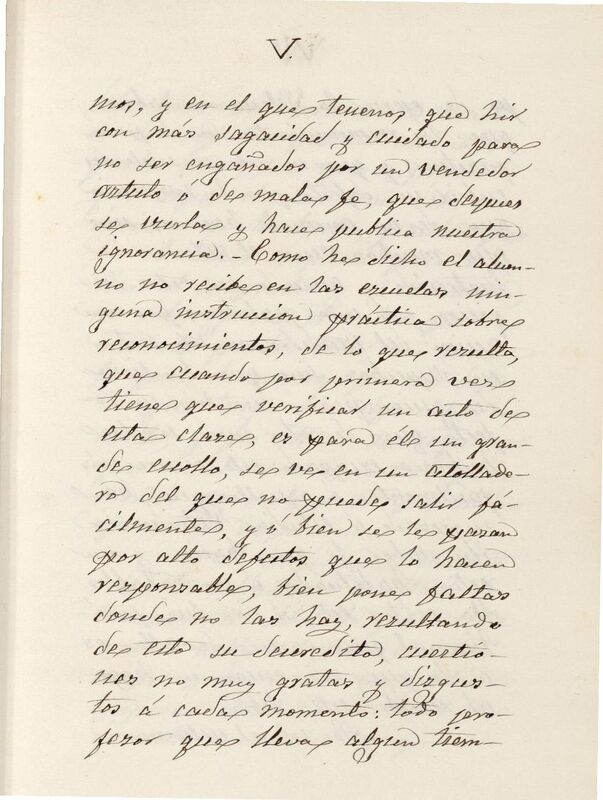 V.
mos, y en el que tenemos que hir
con más sagacidad y cuidado para
no ser engañados por un vendedor
astuto ó de mala fe, que despues
se burla y hace publica nuestra
ignorancia. - Como he dicho el alum-
no no recibe en las escuelas nin-
guna instruccion práctica sobre
reconocimientos, de lo que resulta,
que cuando por primera vez
tiene que verificar un acto de
esta clase, es para él un gran-
de escollo, se ve en un atollade-
ro del que no puede salir fá-
cilmente, y ó bien se le pasan
por alto defectos que lo hacen
responsable, bien pone faltas
donde no las hay, resultando
de esto su descredito, cuestio-
nes no muy gratas y disgus-
tos á cada momento: todo pro-
fesor que lleva algun tiem-